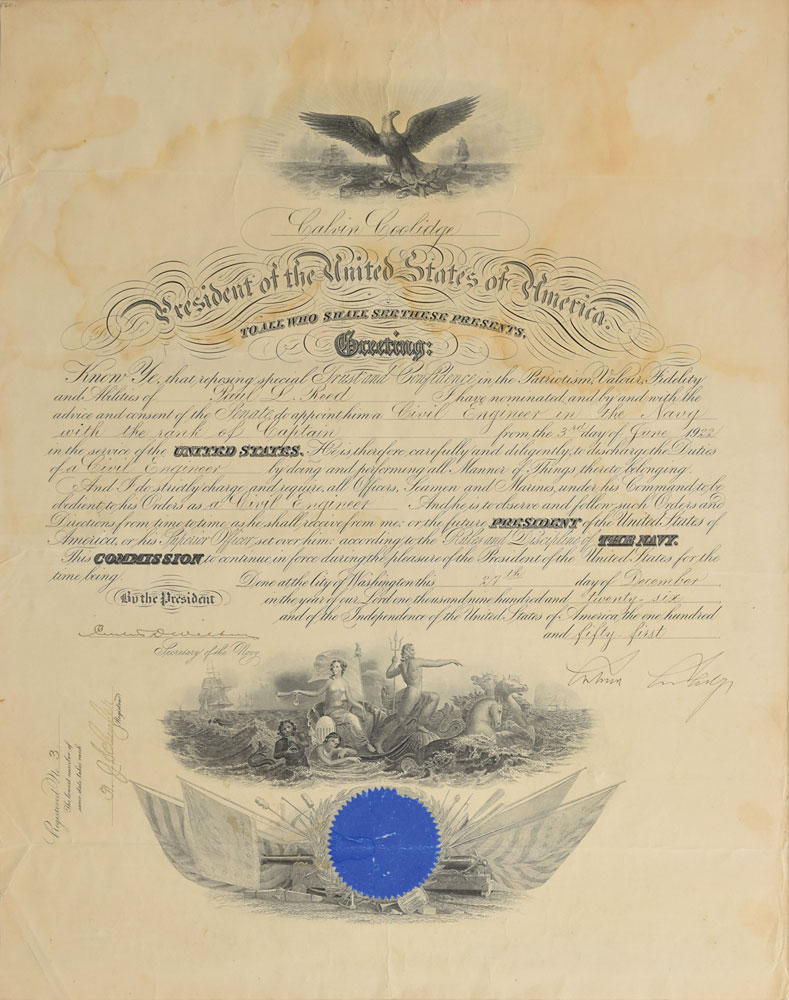 Calvin Coolidge
President of the United States of America.
TO ALL WHO SHALL SEE THESE PRESENTS,
Greeting:
Know Ye, that reposing special Trust and Confidence in the Patriotism, Valour, Fidelity
and Abilities of Paul L. Reed I have nominated and by and with the
advice and consent of the Senate, do appoint him a Civil Engineer in the Navy
with the rank of Captain from the 3rd day of June 1922
in the service of the UNITED STATES. He is therefore carefully and diligently, to discharge the Duties
of a Civil Engineer by doing and performing all Manner of Things thereto belonging.
And I do strictly charge, and require, all Officers, Seamen and Marines, under his Command, to be
obedient to his Orders as a Civil Engineer And he is to observe and follow such Orders and
Directions from time to time as he shall receive from me, or the future PRESIDENT of the United States of
America, or his Superior Officer set over him, according to the Rules and Discipline of THE NAVY.
This COMMISSION to continue in force during the pleasure of the President of the United States for the
time being. Done at the City of Washington this 27th day of December
By the President in the year of our Lord one thousand nine hundred and twenty-six
and of the Independence of the United States of America, the one hundred
and fifty-first
Curtis D. Wilbur
Secretary of the Navy
Calvin Coolidge
Registered No. 3
The lowest number of
same date takes rank
(Registrar)